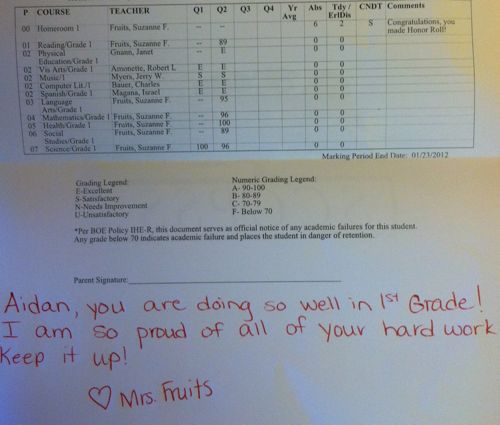 P COURSE TEACHER Q1 Q2 Q3 Q4 Yr Avg Abs Tdy/ErlDis CNDT Comments
00 Homeroom 1 Fruits, Suzanne F. -- -- 6 2 S Congratulations, you
made Honor Roll!
01 Reading/Grade 1 Fruits, Suzanne F. -- 89 0 0
02 Physical Gnann, Janet -- E 0 0
Education/Grade 1
02 Vis Arts/Grade 1 Amonette, Robert L E E 0 0
02 Music/1 Myers, Jerry W. S S 0 0
02 Computer Lit./1 Bauer, Charles E E 0 0
02 Spanish/Grade 1 Magana, Israel E E 0 0
03 Language Fruits, Suzanne F. -- 95 0 0
Arts/Grade 1
04 Mathematics/Grade 1 Fruits, Suzanne F. -- 96 0 0
05 Health/Grade 1 Fruits, Suzanne F. -- 100 0 0
06 Social Fruits, Suzanne F. -- 89 0 0
Studies/Grade 1
07 Science/Grade 1 Fruits, Suzanne F. 100 96 0 0
Marking Period End Date: 01/23/2012
Grading Legend: Numeric Grading Legend:
E-Excellent A- 90-100
S-Satisfactory B- 80-89
N-Needs Improvement C- 70-79
U-Unsatisfactory F- Below 70
*Per BOE Policy IHE-R, this document serves as official notice of any academic failures for this student.
Any grade below 70 indicates academic failure and places the student in danger of retention.
Parent Signature:
Aidan, you are doing so well in 1st Grade!
I am so proud of all of your hard work
Keep it up!
♡ Mrs. Fruits